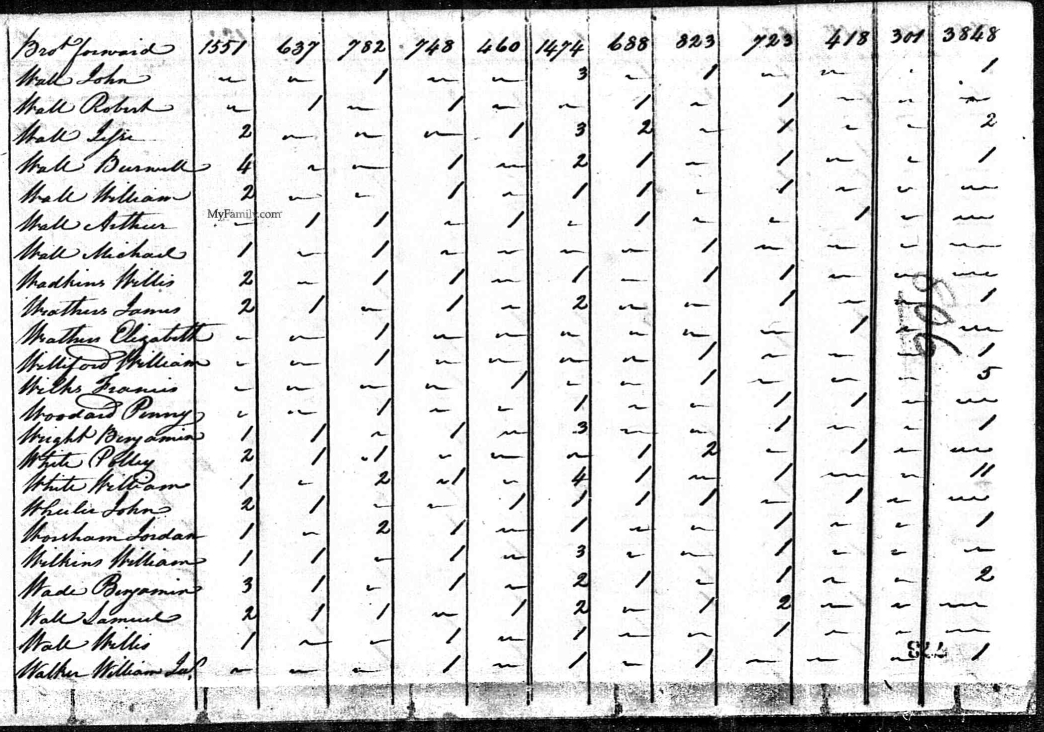 Brot forward 1551 637 782 748 460 1474 688 823 723 418 301 3848
Wall John ~ ~ 1 ~ ~ 3 ~ 1 ~ ~ ~ 1
Wall Robert ~ 1 ~ 1 ~ ~ 1 ~ 1 ~ ~ ~
Wall Jesse 2 ~ ~ ~ 1 3 2 ~ 1 ~ ~ 2
Wall Burwell 4 ~ ~ 1 ~ 2 1 ~ 1 ~ ~ 1
Wall William 2 ~ ~ 1 ~ 1 1 ~ 1 ~ ~ ~
MyFamily.com
Wall Arthur ~ 1 1 ~ 1 ~ 1 ~ ~ 1 ~ ~
Wall Michael 1 ~ 1 ~ ~ ~ ~ 1 ~ ~ ~ ~
Wadkins Willis 2 ~ 1 1 ~ 1 ~ 1 1 ~ ~ ~
Weathers James 2 1 ~ 1 ~ 2 ~ ~ 1 ~ ~ 1
Weathers Elizabeth ~ ~ 1 ~ ~ ~ ~ ~ ~ 1 ~ ~
Williford William ~ ~ 1 ~ ~ ~ ~ 1 ~ ~ ~ 1
Wilks Francis ~ ~ ~ ~ 1 ~ ~ 1 ~ ~ ~ 5
Woodard Penny ~ ~ 1 ~ ~ 1 ~ ~ 1 1 ~ ~
Wright Benjamin 1 1 ~ 1 ~ 3 ~ ~ 1 ~ ~ 1
White Polley 2 1 1 ~ ~ ~ 1 2 ~ 1 ~ ~
White William 1 ~ 2 1 ~ 4 1 ~ 1 ~ ~ 11
Wheeler John 2 1 ~ ~ 1 1 1 1 ~ 1 ~ ~
Worsham Jordan 1 ~ 2 1 ~ 1 ~ ~ 1 ~ ~ 1
Wilkins William 1 1 ~ 1 ~ 3 ~ ~ 1 ~ ~ ~
Wade Benjamin 3 1 ~ 1 ~ 2 1 ~ 1 ~ ~ 2
Wall Samuel 2 1 1 ~ 1 2 ~ 1 2 ~ ~ ~
Wall Willis 1 ~ ~ 1 ~ 1 ~ ~ 1 ~ ~ ~
Walker William ~ ~ ~ 1 ~ 1 ~ 1 ~ ~ ~ 1